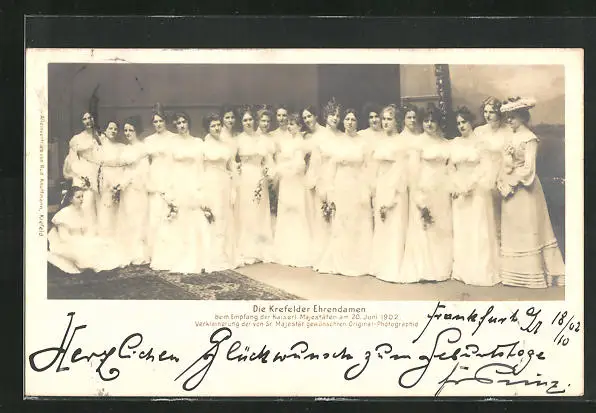 Die Krefelder Ehrendamen
beim Empfang der Kaiserl. Majestäten am 20. Juni 1902.
Verkleinerung der von Sr. Majestät gewünschten Original-Photographie
Frankfurt 18/10 02
Herzlichen Glückwunsch zum Geburtstage